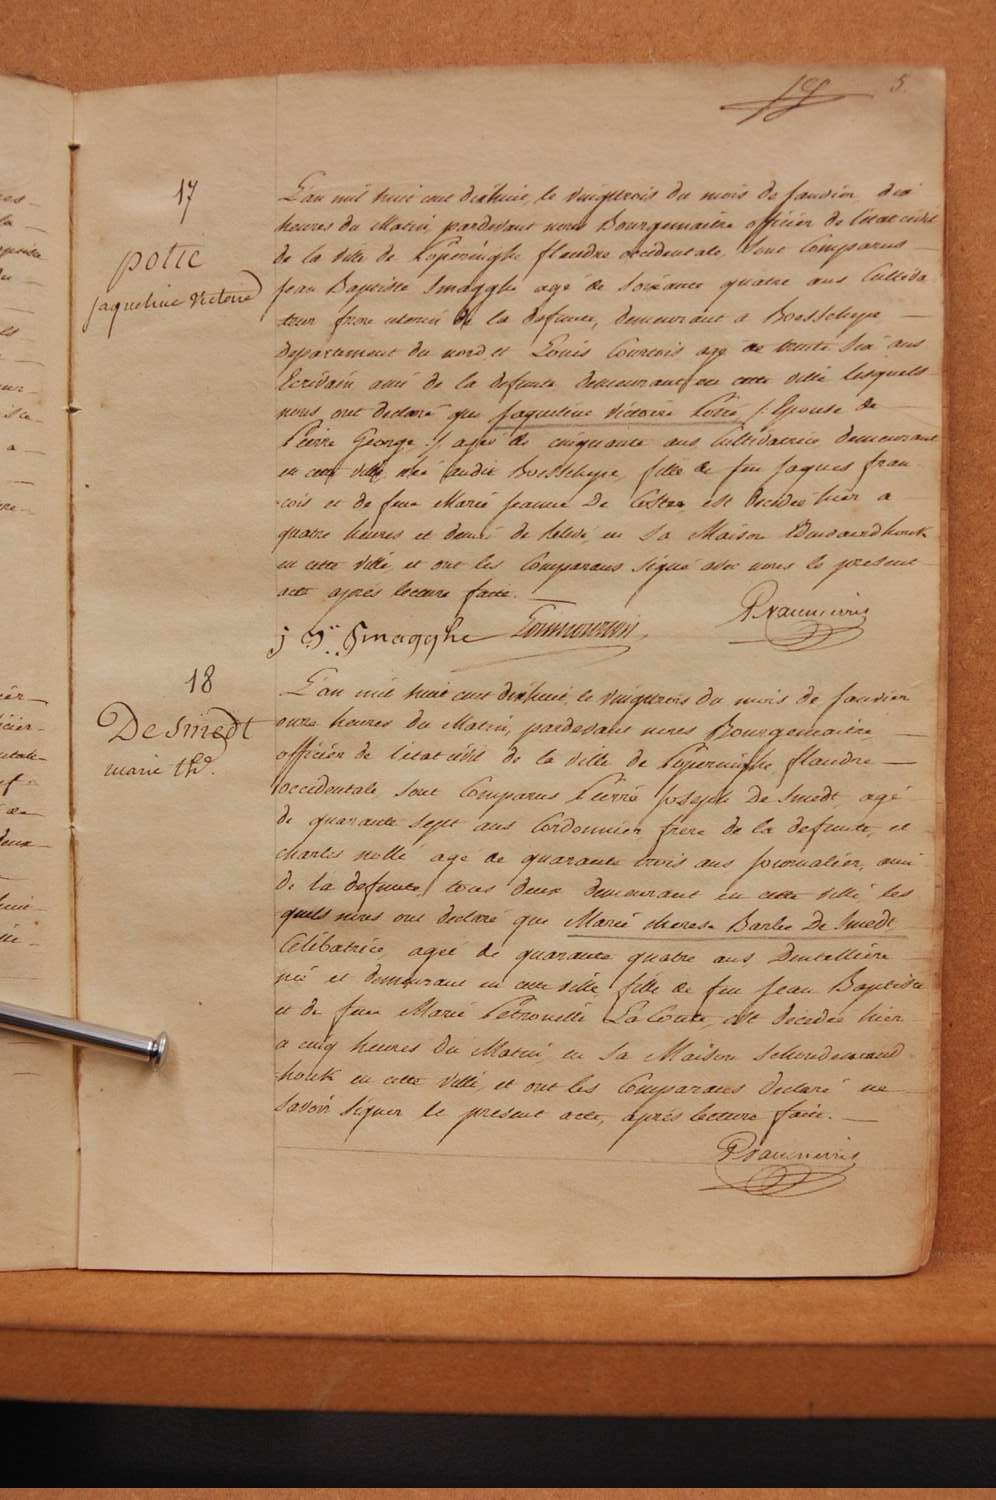 5.
17
potie
jaqueline victoire
L'an mil huit cent dixhuit, le vingttrois du mois de Janvier dix
heures du Matin, pardevant nous Bourgemaitre officier de l'état civil
de la ville de Poperinghe flandre occidentale, sont Comparus
Jean Baptiste Smagghe agé de soixante quatre ans Cultiva
teur frere uterin de la defunte, demeurant a Boesschepe
departement du nord et Louis Courtois agé de trente six ans
Ecrivain ami de la defunte demeurant en cette ville lesquels
nous ont declaré que Jaqueline Victoire Potié /: Epouse de
Pierre George :/ agée de cinquante ans Cultivatrice demeurant
en cette ville née audit Boesschepe, fille de feu Jaques fran
cois et de feue Marie Jeanne De Coster est decedée hier a
quatre heures et demi de relevé, en sa Maison
en cette ville, et ont les Comparans signé avec nous le present
acte après lecture faite.
j Bte Smagghe
18
De Smedt
marie thé.
L'an mil huit cent dixhuit, le vingttrois du mois de Janvier
onze heures du Matin, pardevant nous Bourgemaitre
officier de l'état civil de la ville de Poperinghe flandre
occidentale sont Comparus Pierre Joseph De Smedt, agé
de quarante sept ans Cordonnier frere de la defunte, et
charles nollé agé de quarante trois ans journalier, ami
de la defunte, tous deux demeurant en cette ville, les
quels nous ont declaré que Marie therese Barbe De Smedt
Celibatrice, agée de quarante quatre ans, Dentellière
née et demeurant en cette ville, fille de feu Jean Baptiste
et de feue Marie Petronille La Conte, est decedée hier
a cinq heures du Matin, en sa Maison
houk en cette ville et ont les Comparans declaré ne
savoir signer le present acte, après lecture faite.